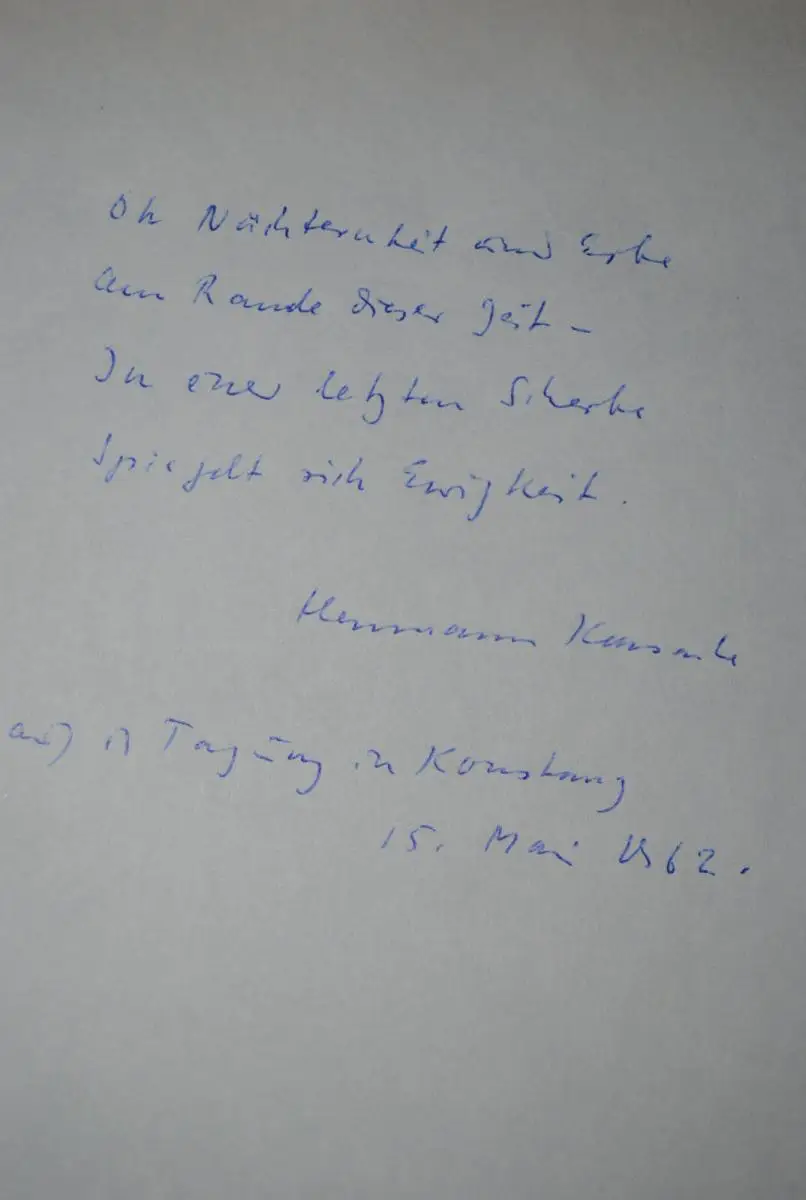 Oh Nüchternheit und Erbe
am Rande dieser Zeit –
In einer letzten Scherbe
Spiegelt sich Ewigkeit.
Hermann Kasack
auf d Tagung in Konstanz
15. Mai 1962.